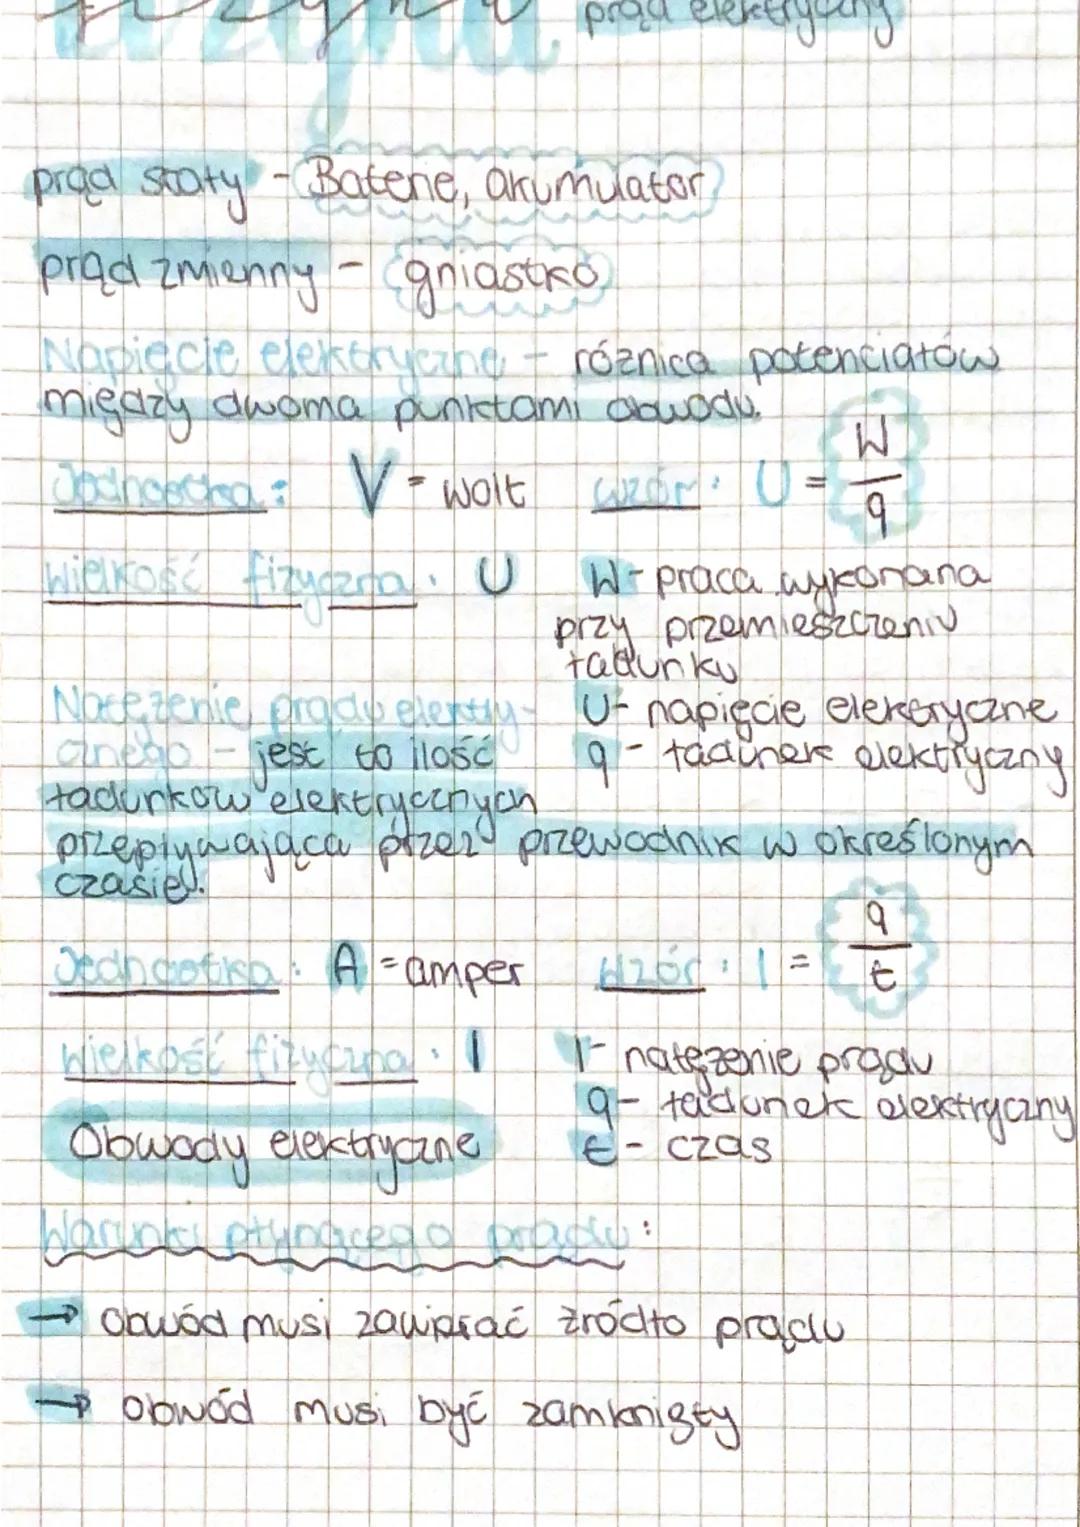 fizyka prąd elektryczny
prąd stały - Baterie, akumulator
prąd zmienny - gniastko
Napięcie elektryczne - różnica potencjałów
między dwoma punktami obwodu.
Jednostka: V = wolt wzór: U = W/q
Wielkość fizyczna: U W- praca wykonana
przy przemieszczeniu
ładunku
U- napięcie elektryczne
q - ładunek elektryczny
Natężenie prądu elektry-
cznego - jest to ilość
ładunków elektrycznych
przepływająca przez przewodnik w określonym
czasie.
Jednostka: A = amper Wzór: I = q/t
Wielkość fizyczna: I I- natężenie prądu
q- ładunek elektryczny
t - czas
Obwody elektryczne
Warunki płynącego prądu:
→ Obwód musi zawierać źródło prądu
→ Obwód musi być zamknięty